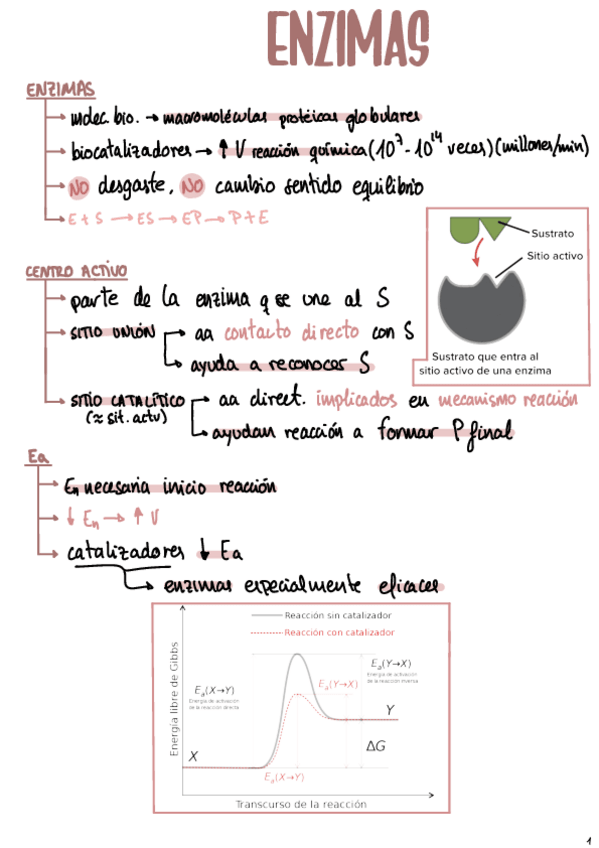 ENZIMAS
ENZIMAS
→ molec. bio. → macromoléculas protéicas globulares
→ biocatalizadores → ↑ V reacción química (10⁷ - 10¹⁴ veces) (millones/min)
→ NO desgaste, NO cambio sentido equilibrio
→ E + S → ES → EP → P + E
Sustrato
Sitio activo
Sustrato que entra al
sitio activo de una enzima
CENTRO ACTIVO
→ parte de la enzima q se une al S
→ SITIO UNIÓN → aa contacto directo con S
→ ayuda a reconocer S
→ SITIO CATALÍTICO → aa direct. implicados en mecanismo reacción
(≈ sit. actv)
→ ayudan reacción a formar P final
Ea
→ En necesaria inicio reacción
→ ↓ En → ↑ V
→ catalizadores ↓ Ea
→ enzimas especialmente eficaces
Reacción sin catalizador
Reacción con catalizador
Energía libre de Gibbs
Eₐ(Y→X)
Energía de activación
de la reacción inversa
Eₐ(Y→X)
Eₐ(X→Y)
Energía de activación
de la reacción directa
Y
ΔG
X
Eₐ(X→Y)
Transcurso de la reacción
1